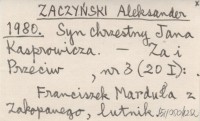 ZACZYŃSKI Aleksander
1980. Syn chrzestny Jana
Kasprowicza. — Za i
Przeciw , nr 3 (20 I):
Franciszek Marduła z
Zakopanego, lutnik